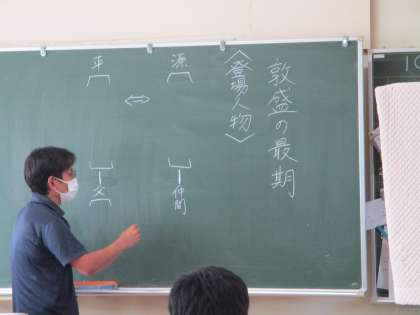 敦盛の最期
〈登場人物〉
源
仲間
⇔
平
父
10